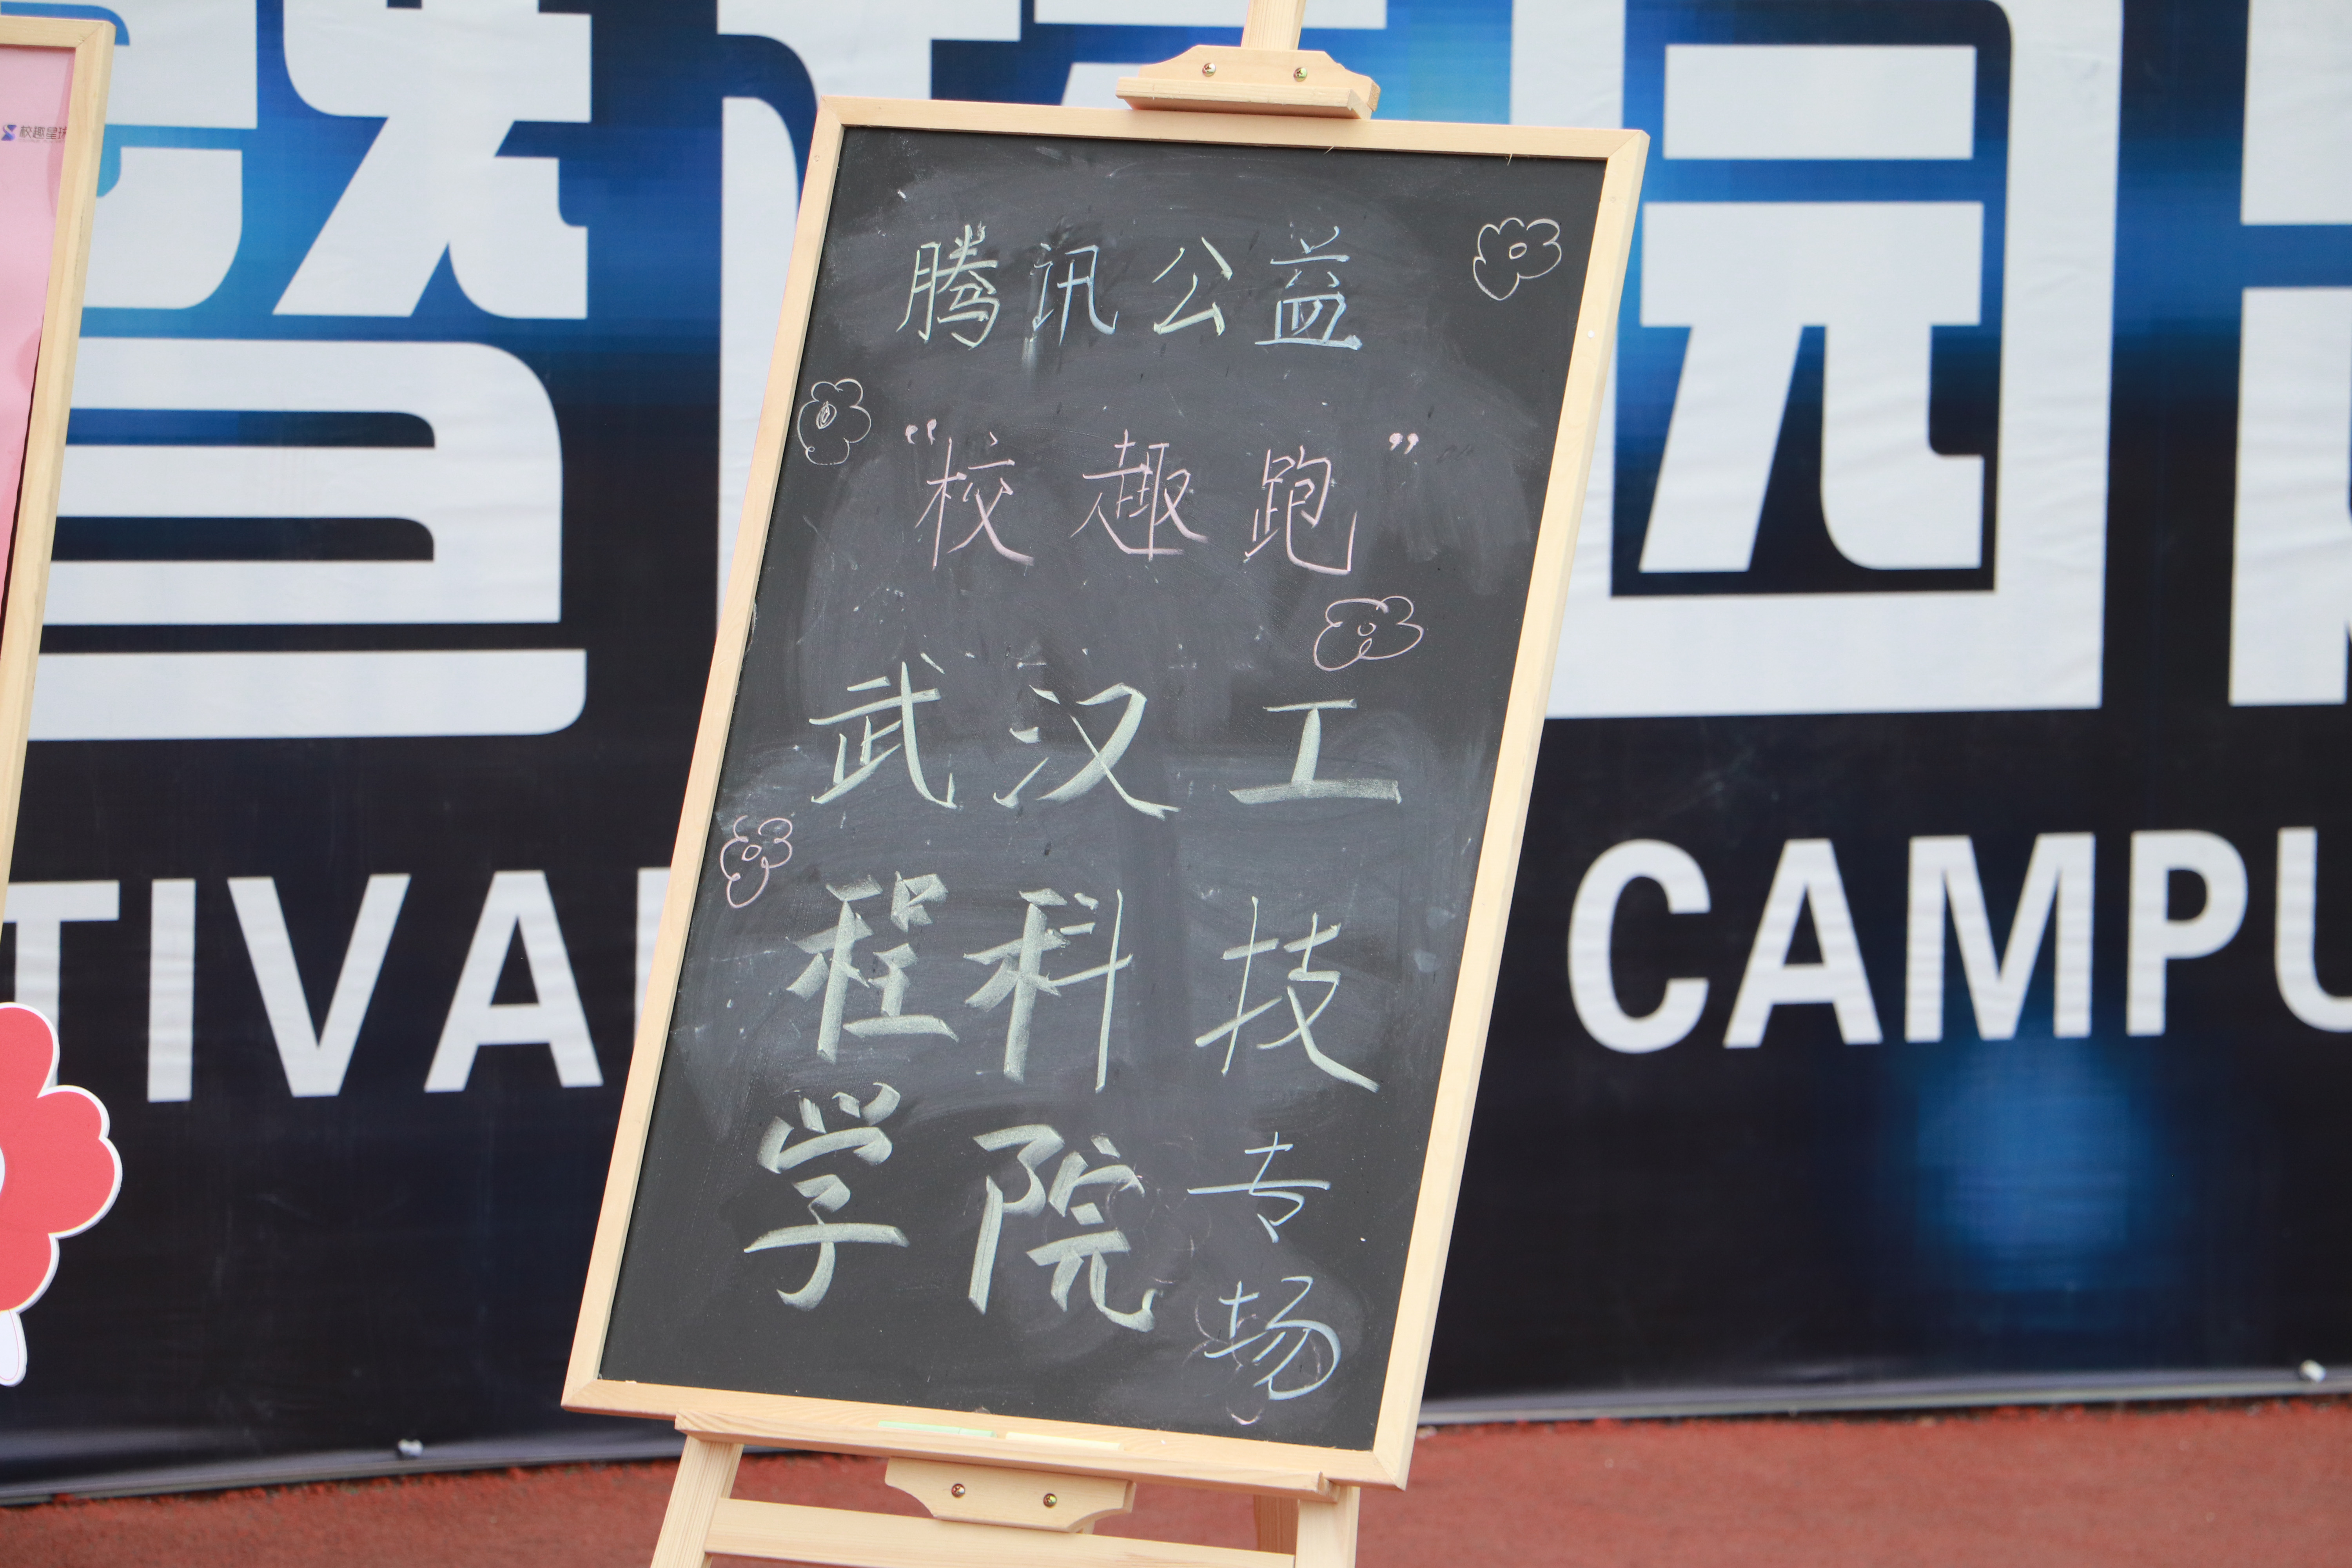 腾讯公益
“校趣跑”
武汉工
程科技
学院 专
场
校趣星
园
TIVA
CAMPU